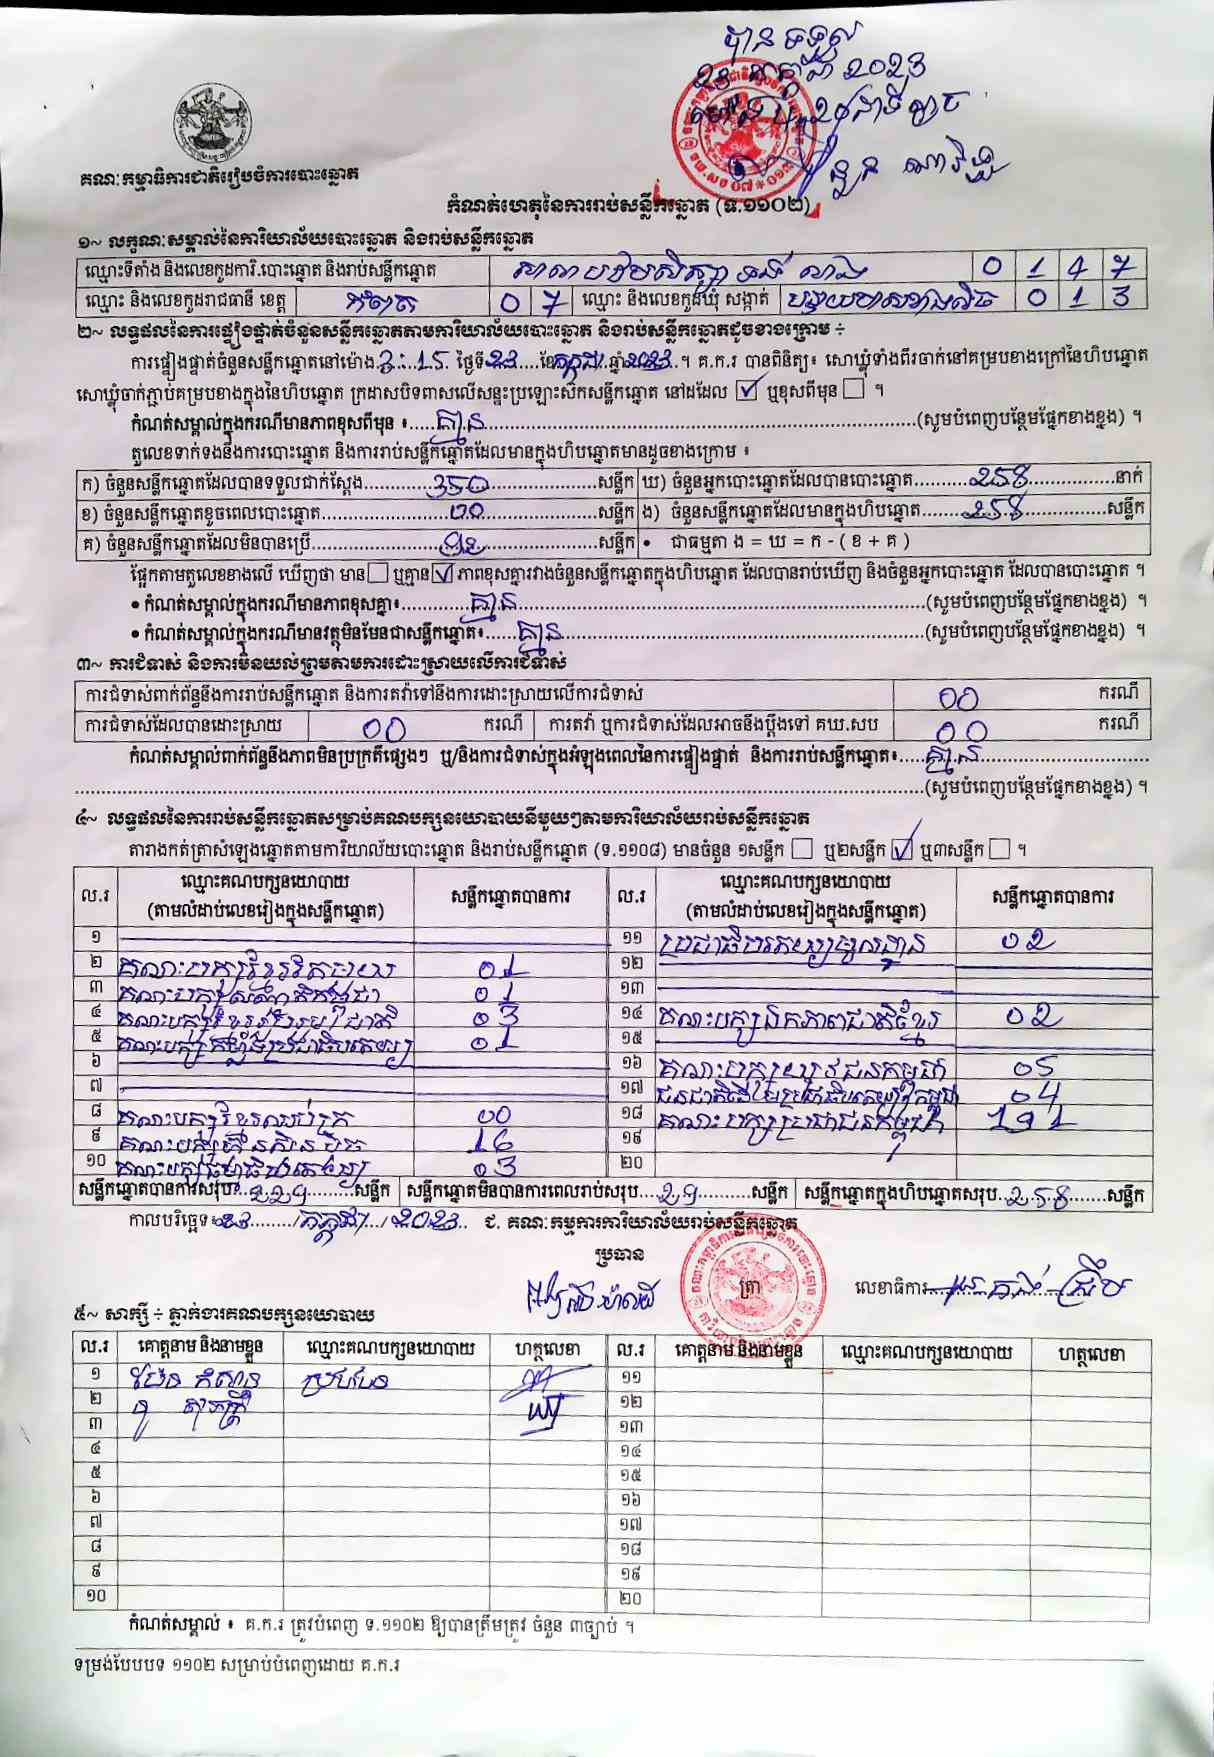 បានទទួល
២៣ កក្កដា 2023
គណៈកម្មាធិការជាតិរៀបចំការបោះឆ្នោត
កំណត់ហេតុនៃការរាប់សន្លឹកឆ្នោត (ទ.១១០២)
១~ លក្ខណៈសម្គាល់នៃការិយាល័យបោះឆ្នោត និងរាប់សន្លឹកឆ្នោត
ឈ្មោះទីតាំង និងលេខកូដការិ.បោះឆ្នោត និងរាប់សន្លឹកឆ្នោត សាលាបឋមសិក្សា ទន់ លាង 0 1 4 7
ឈ្មោះ និងលេខកូដរាជធានី ខេត្ត កំពត 0 7 ឈ្មោះ និងលេខកូដឃុំ សង្កាត់ បន្ទាយមាសខាងលិច 0 1 3
២~ លទ្ធផលនៃការផ្ទៀងផ្ទាត់ចំនួនសន្លឹកឆ្នោតតាមការិយាល័យបោះឆ្នោត និងរាប់សន្លឹកឆ្នោតដូចខាងក្រោម ÷
ការផ្ទៀងផ្ទាត់ចំនួនសន្លឹកឆ្នោតនៅម៉ោង 3:15 ថ្ងៃទី 23 ខែ កក្កដា ឆ្នាំ 2023 ។ គ.ក.រ បានពិនិត្យ៖ សោឃ្លុំទាំងពីរចាក់នៅគម្របខាងក្រៅនៃហិបឆ្នោត
សោឃ្លុំចាក់ភ្ជាប់គម្របខាងក្នុងនៃហិបឆ្នោត ក្រដាសបិទពាសលើសន្ទះប្រឡោះស៊កសន្លឹកឆ្នោត នៅដដែល ☑ ឬខុសពីមុន ☐ ។
កំណត់សម្គាល់ក្នុងករណីមានភាពខុសពីមុន ៖ គ្មាន (សូមបំពេញបន្ថែមផ្នែកខាងខ្នង) ។
តួលេខទាក់ទងនឹងការបោះឆ្នោត និងការរាប់សន្លឹកឆ្នោតដែលមានក្នុងហិបឆ្នោតមានដូចខាងក្រោម ៖
ក) ចំនួនសន្លឹកឆ្នោតដែលបានទទួលជាក់ស្តែង 350 សន្លឹក ឃ) ចំនួនអ្នកបោះឆ្នោតដែលបានបោះឆ្នោត 258 នាក់
ខ) ចំនួនសន្លឹកឆ្នោតខូចពេលបោះឆ្នោត 00 សន្លឹក ង) ចំនួនសន្លឹកឆ្នោតដែលមានក្នុងហិបឆ្នោត 258 សន្លឹក
គ) ចំនួនសន្លឹកឆ្នោតដែលមិនបានប្រើ 92 សន្លឹក • ជាធម្មតា ង = ឃ = ក - ( ខ + គ )
ផ្អែកតាមតួលេខខាងលើ ឃើញថា មាន ☐ ឬគ្មាន ☑ ភាពខុសគ្នារវាងចំនួនសន្លឹកឆ្នោតក្នុងហិបឆ្នោត ដែលបានរាប់ឃើញ និងចំនួនអ្នកបោះឆ្នោត ដែលបានបោះឆ្នោត ។
• កំណត់សម្គាល់ក្នុងករណីមានភាពខុសគ្នា៖ គ្មាន (សូមបំពេញបន្ថែមផ្នែកខាងខ្នង) ។
• កំណត់សម្គាល់ក្នុងករណីមានវត្ថុមិនមែនជាសន្លឹកឆ្នោត៖ គ្មាន (សូមបំពេញបន្ថែមផ្នែកខាងខ្នង) ។
៣~ ការជំទាស់ និងការមិនយល់ព្រមតាមការដោះស្រាយលើការជំទាស់
ការជំទាស់ពាក់ព័ន្ធនឹងការរាប់សន្លឹកឆ្នោត និងការតវ៉ាទៅនឹងការដោះស្រាយលើការជំទាស់ 00 ករណី
ការជំទាស់ដែលបានដោះស្រាយ 00 ករណី ការតវ៉ា ឬការជំទាស់ដែលអាចនឹងប្តឹងទៅ គឃ.សប 00 ករណី
កំណត់សម្គាល់ពាក់ព័ន្ធនឹងភាពមិនប្រក្រតីផ្សេងៗ ឬ/និងការជំទាស់ក្នុងអំឡុងពេលនៃការផ្ទៀងផ្ទាត់ និងការរាប់សន្លឹកឆ្នោត៖ គ្មាន
(សូមបំពេញបន្ថែមផ្នែកខាងខ្នង) ។
៤~ លទ្ធផលនៃការរាប់សន្លឹកឆ្នោតសម្រាប់គណបក្សនយោបាយនីមួយៗតាមការិយាល័យរាប់សន្លឹកឆ្នោត
តារាងកត់ត្រាសំឡេងឆ្នោតតាមការិយាល័យបោះឆ្នោត និងរាប់សន្លឹកឆ្នោត (ទ.១១០៨) មានចំនួន ១សន្លឹក ☐ ឬ២សន្លឹក ☑ ឬ៣សន្លឹក ☐ ។
ល.រ ឈ្មោះគណបក្សនយោបាយ សន្លឹកឆ្នោតបានការ ល.រ ឈ្មោះគណបក្សនយោបាយ សន្លឹកឆ្នោតបានការ
(តាមលំដាប់លេខរៀងក្នុងសន្លឹកឆ្នោត) (តាមលំដាប់លេខរៀងក្នុងសន្លឹកឆ្នោត)
១ ១១ ប្រជាធិបតេយ្យមូលដ្ឋាន 02
២ គណៈបក្សខ្មែរ 01 ១២
៣ គណៈបក្ស 01 ១៣
៤ គណៈបក្សខ្មែររួបរួមជាតិ 03 ១៤ គណៈបក្សឯកភាពជាតិខ្មែរ 02
៥ គណៈបក្សកម្លាំងប្រជាធិបតេយ្យ 01 ១៥
៦ ១៦ គណៈបក្សយុវជនកម្ពុជា 05
៧ ១៧ ជនជាតិដើមប្រជាធិបតេយ្យកម្ពុជា 04
៨ គណៈបក្សខ្មែរឈប់ក្រ 00 ១៨ គណៈបក្សប្រជាជនកម្ពុជា 191
៩ គណៈបក្សហ្វ៊ុនស៊ិនប៉ិច 16 ១៩
១០ គណៈបក្សធម្មាធិបតេយ្យ 03 ២០
សន្លឹកឆ្នោតបានការសរុប៖ 229 សន្លឹក សន្លឹកឆ្នោតមិនបានការពេលរាប់សរុប 29 សន្លឹក សន្លឹកឆ្នោតក្នុងហិបឆ្នោតសរុប 258 សន្លឹក
កាលបរិច្ឆេទ៖ 23 / កក្កដា / 2023 ជ. គណៈកម្មការការិយាល័យរាប់សន្លឹកឆ្នោត
ប្រធាន
ត្រា
លេខាធិការ
៥~ សាក្សី ÷ ភ្នាក់ងារគណបក្សនយោបាយ
ល.រ គោត្តនាម និងនាមខ្លួន ឈ្មោះគណបក្សនយោបាយ ហត្ថលេខា ល.រ គោត្តនាម និងនាមខ្លួន ឈ្មោះគណបក្សនយោបាយ ហត្ថលេខា
១ ១១
២ ១២
៣ ១៣
៤ ១៤
៥ ១៥
៦ ១៦
៧ ១៧
៨ ១៨
៩ ១៩
១០ ២០
កំណត់សម្គាល់ ៖ គ.ក.រ ត្រូវបំពេញ ទ.១១០២ ឱ្យបានត្រឹមត្រូវ ចំនួន ៣ច្បាប់ ។
ទម្រង់បែបបទ ១១០២ សម្រាប់បំពេញដោយ គ.ក.រ